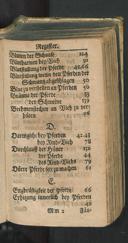 Register.
Blattern der Schaafe 114
Blutharnen bey Vieh 91
Blutstallung der Pferde 40.46
Blutstillung wenn den Pferden der
Schwantz abgeschlagen 50
Blut zu verstellen an Pferden 50
Bräune der Pferde 23
der Schweine 139
Bremensiechen an Vieh zu ver-
hüten 88
D.
Darmgicht bey Pferden 42.43
des Rind-Vieh 78
Durchlauff der Hüner 152
der Pferde 44
des Rind-Vieh 779
Dürre Pferde fett zu machen 61
E.
Engbrüstigkeit der Pferde 66
Erhitzung innerlich bey Pferden
48
Mm 2